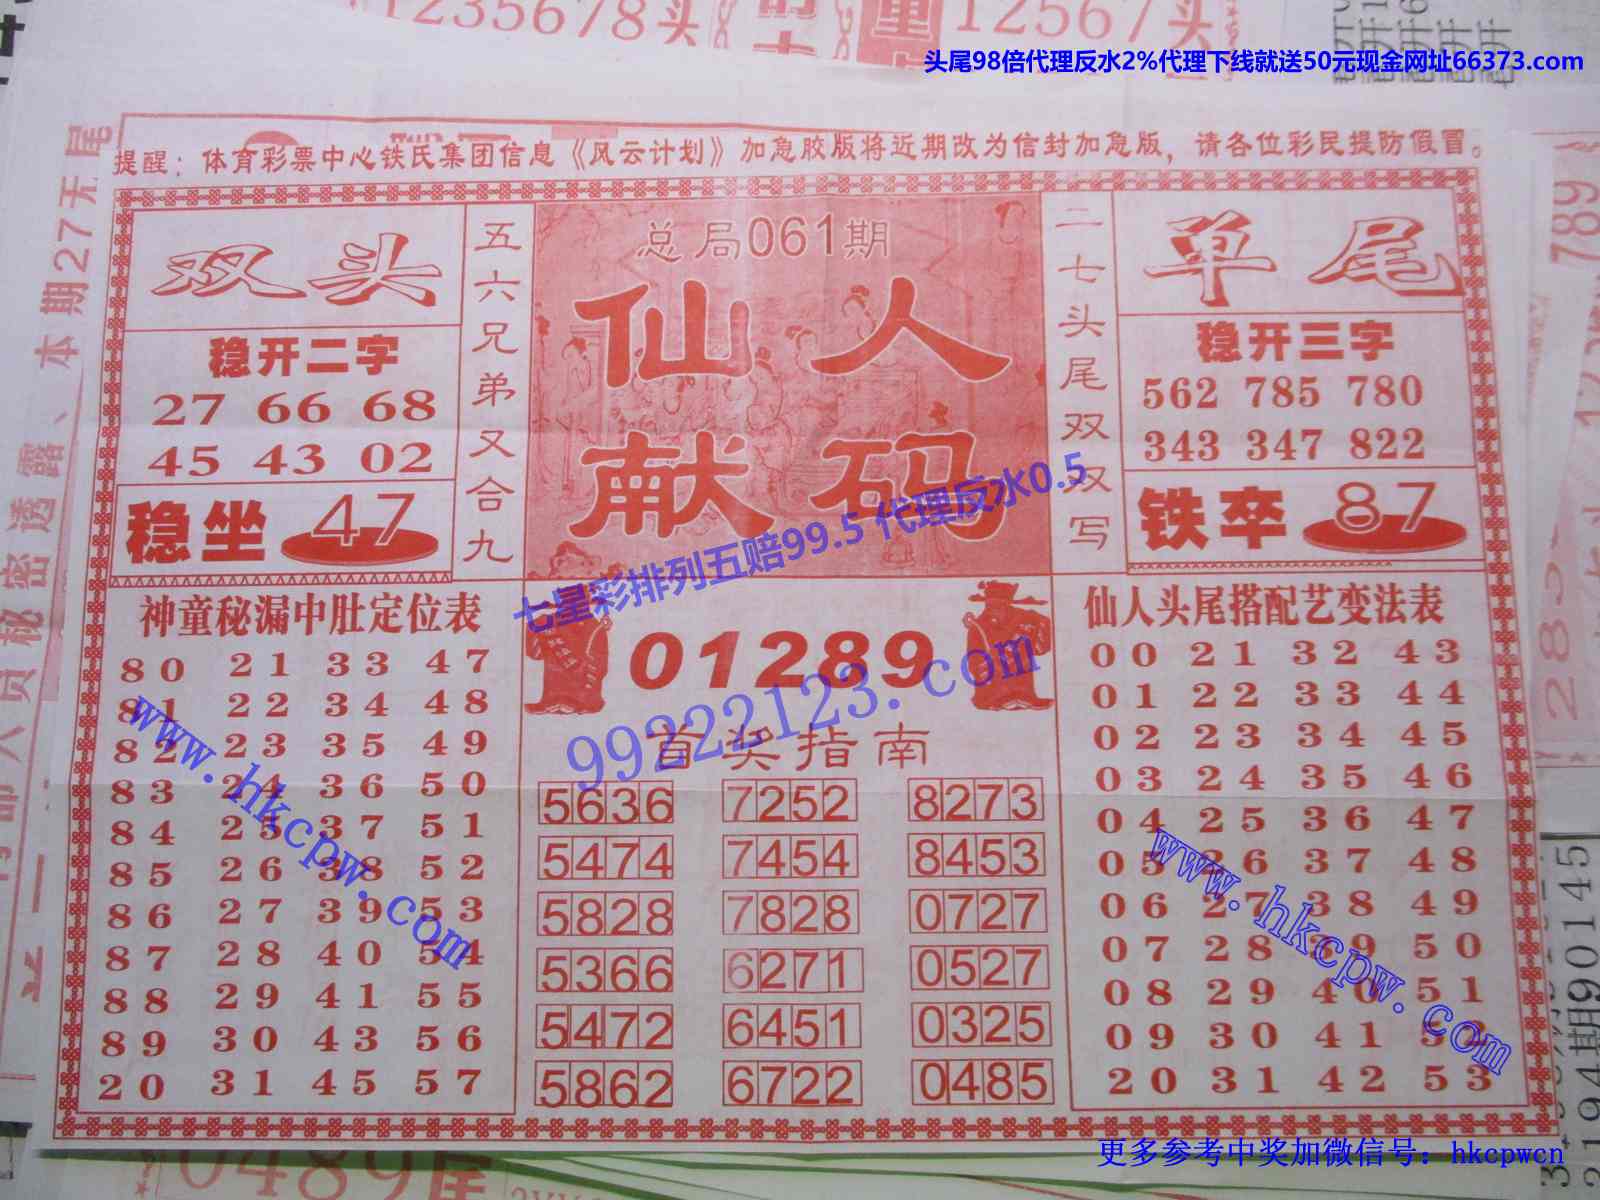 1235678头
12567头
头尾98倍代理反水2%代理下线就送50元现金网址66373.com
提醒：体育彩票中心铁氏集团信息《风云计划》加急胶版将近期改为信封加急版，请各位彩民提防假冒。
双头
稳开二字
27 66 68
45 43 02
稳坐 47
五六兄弟又合九
总局061期
仙人
献码
二七头尾双双写
单尾
稳开三字
562 785 780
343 347 822
铁卒 87
七星彩排列五赔99.5 代理反水0.5
99222123.com
神童秘漏中肚定位表
80 21 33 47
81 22 34 48
82 23 35 49
83 24 36 50
84 25 37 51
85 26 38 52
86 27 39 53
87 28 40 54
88 29 41 55
89 30 43 56
20 31 45 57
www.hkcpw.com
01289
首奖指南
5636 7252 8273
5474 7454 8453
5828 7828 0727
5366 6271 0527
5472 6451 0325
5862 6722 0485
仙人头尾搭配艺变法表
00 21 32 43
01 22 33 44
02 23 34 45
03 24 35 46
04 25 36 47
05 26 37 48
06 27 38 49
07 28 39 50
08 29 40 51
09 30 41 52
20 31 42 53
www.hkcpw.com
本期27无尾
员秘密透露、
789
2194期90145
0489尾
更多参考中奖加微信号：hkcpwcn